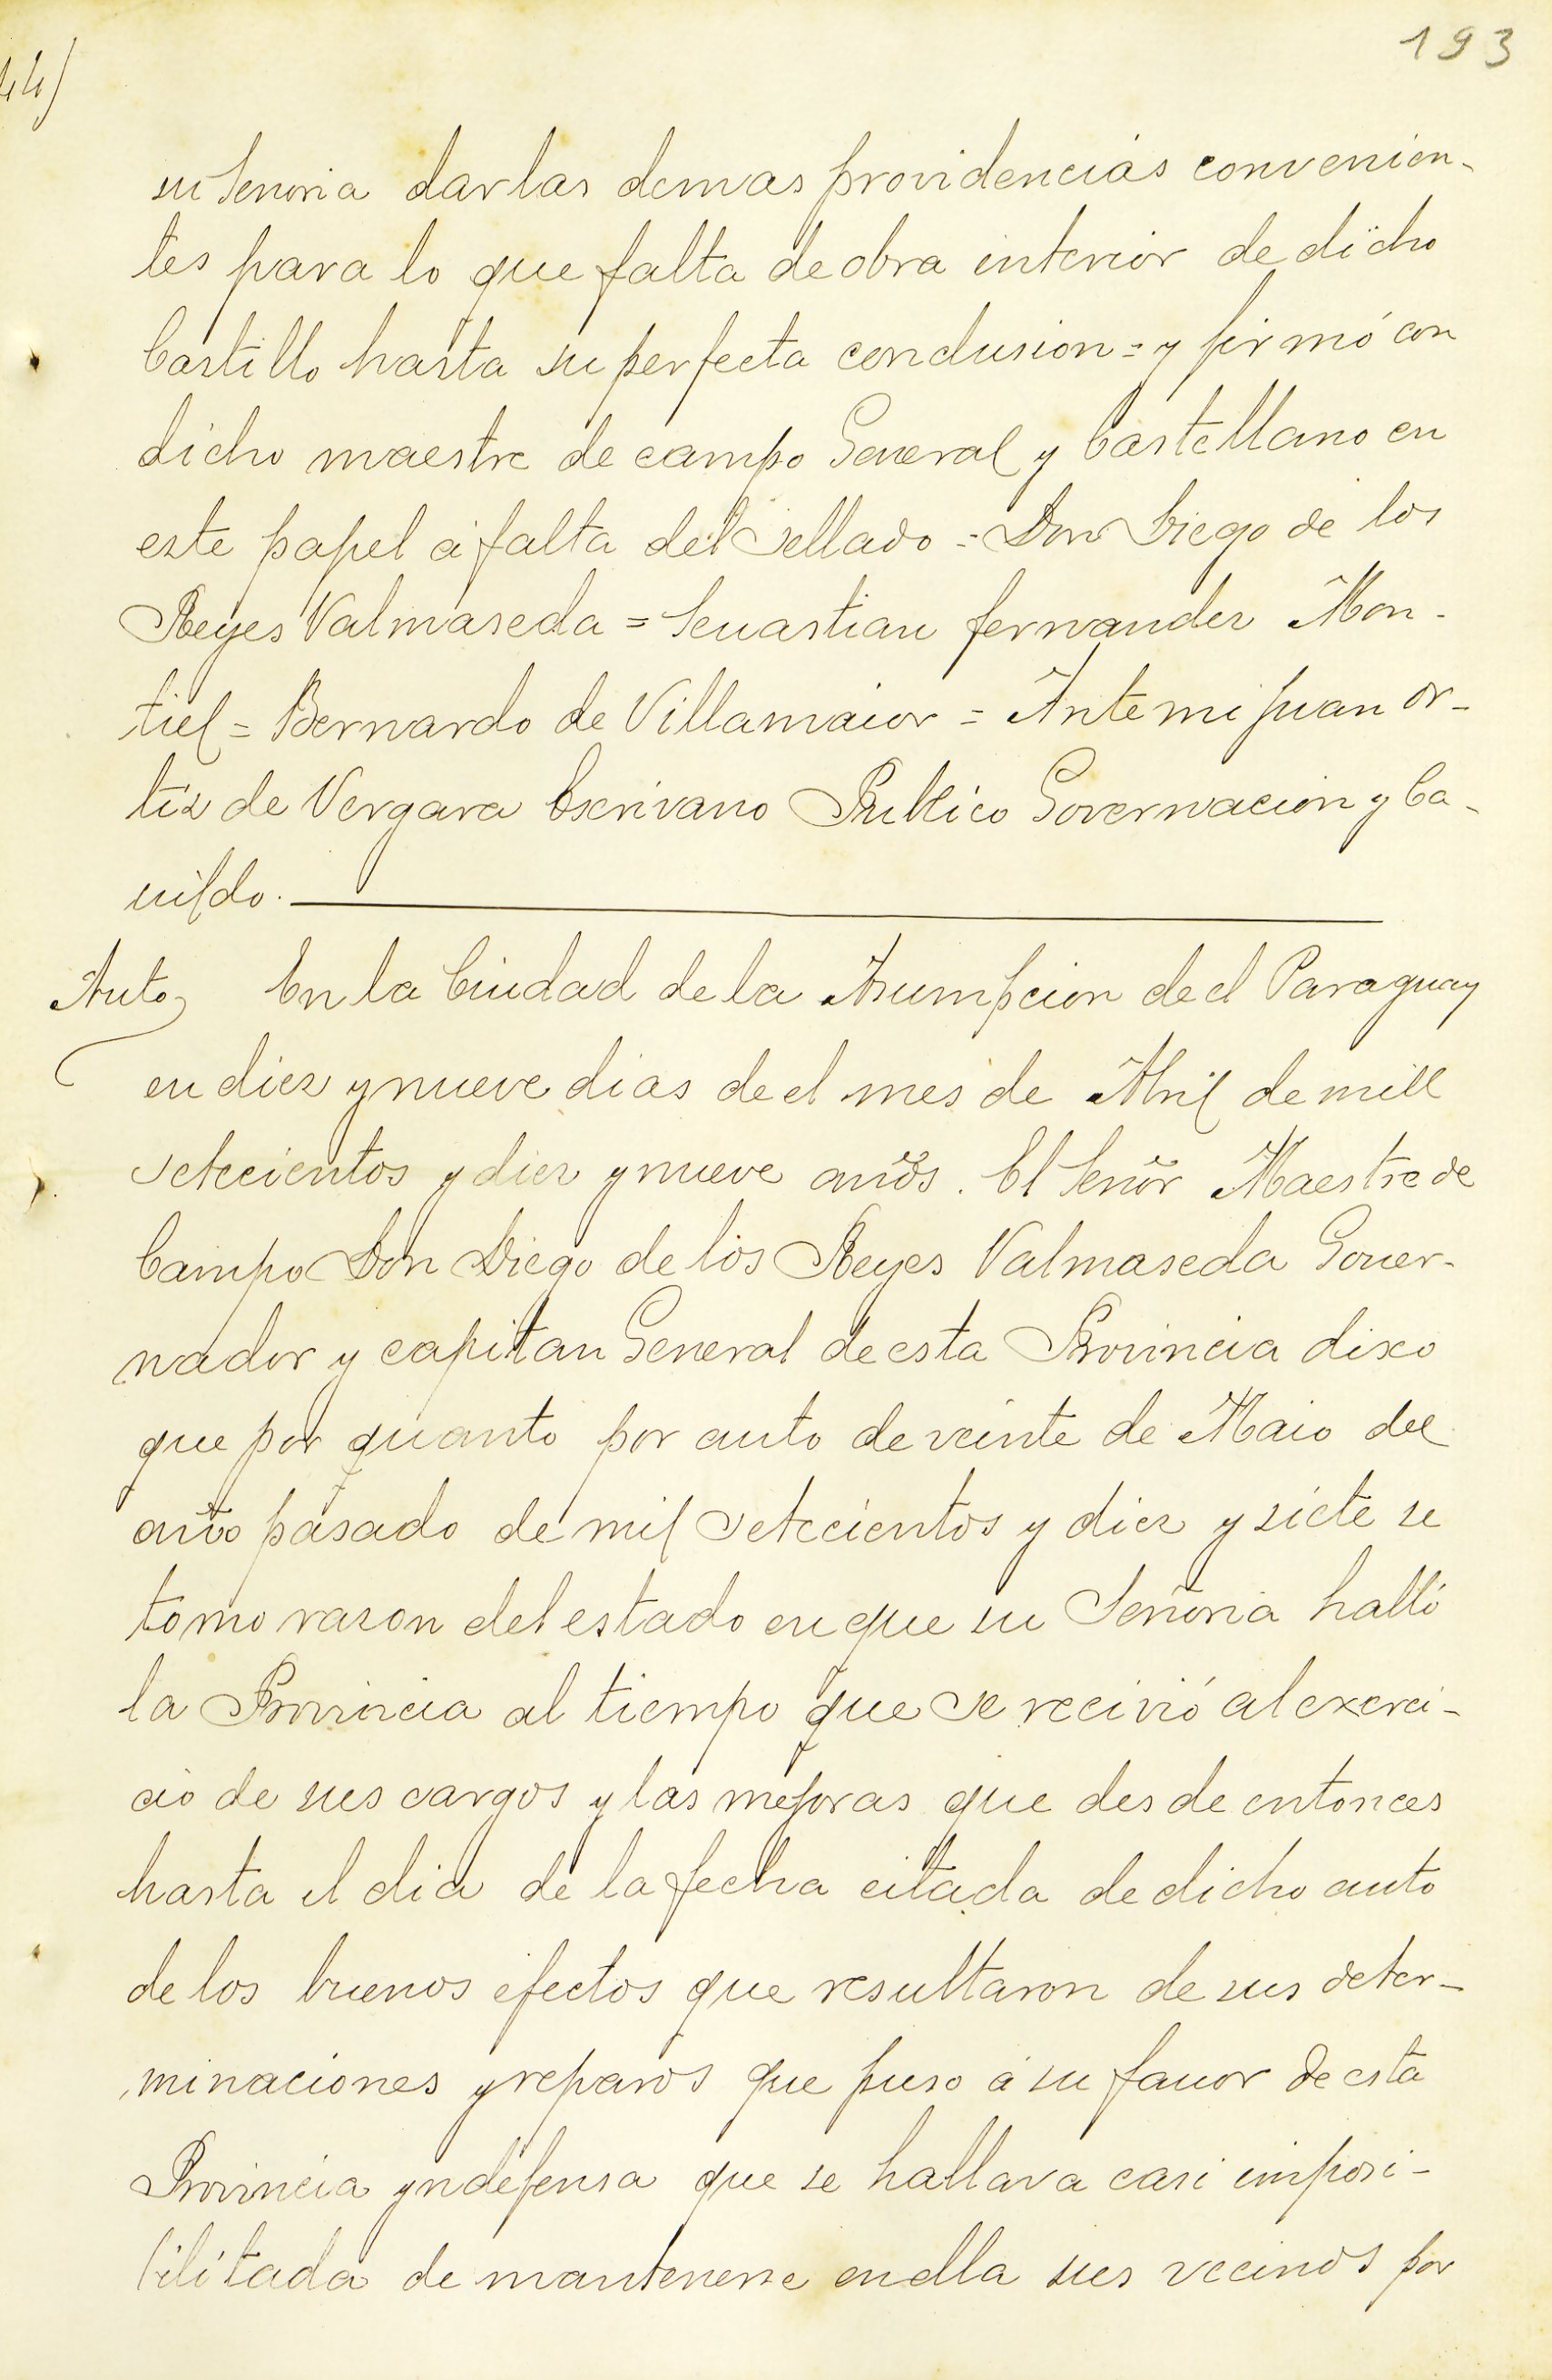 193
44)
su Senoria dar las demas providencias convenien-
tes para lo que falta de obra interior de dicho
Castillo hasta su perfecta conclusion = y firmó con
dicho maestre de campo General y Castellano en
este papel á falta del Sellado = Don Diego de los
Reyes Valmaseda = Seuastian fernandez Mon-
tiel = Bernardo de Villamaior = Ante mi Juan Or-
tiz de Vergara Escrivano Publico Governacion y Ca-
uildo.
Auto En la Ciudad de la Asumpcion de el Paraguay
en diez y nueve dias de el mes de Abril de mill
setecientos y diez y nueve años. El Señor Maestre de
Campo Don Diego de los Reyes Valmaseda Gouer-
nador y capitan General de esta Provincia dixo
que por quanto por auto de veinte de Maio del
año pasado de mil setecientos y diez y siete se
tomo razon del estado en que su Señoria halló
la Provincia al tiempo que se recivió al exerci-
cio de sus cargos y las mejoras que desde entonces
hasta el dia de la fecha citada de dicho auto
de los buenos efectos que resultaron de sus deter-
minaciones y reparos que puso á su fauor de esta
Provincia yndefensa que se hallava casi imposi-
bilitada de mantenerse en ella sus vecinos por